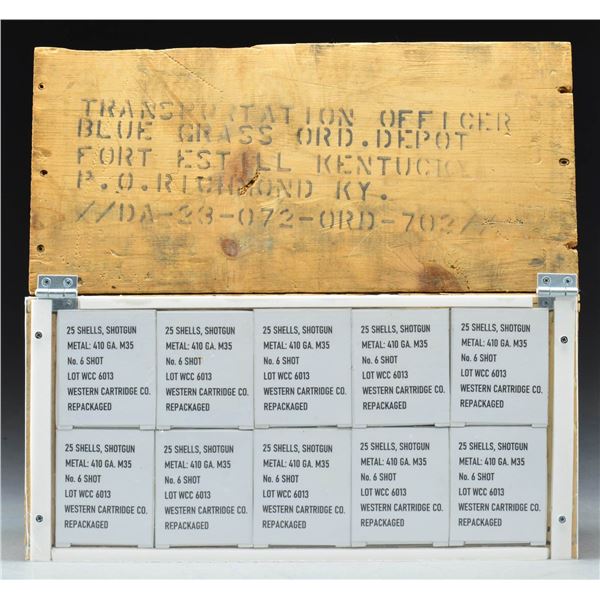 TRANSPORTATION OFFICER
BLUE GRASS ORD. DEPOT
FORT ESTILL KENTUCKY
P.O. RICHMOND KY.
//DA-23-072-ORD-702//
25 SHELLS, SHOTGUN
METAL: 410 GA. M35
No. 6 SHOT
LOT WCC 6013
WESTERN CARTRIDGE CO.
REPACKAGED
25 SHELLS, SHOTGUN
METAL: 410 GA. M35
No. 6 SHOT
LOT WCC 6013
WESTERN CARTRIDGE CO.
REPACKAGED
25 SHELLS, SHOTGUN
METAL: 410 GA. M35
No. 6 SHOT
LOT WCC 6013
WESTERN CARTRIDGE CO.
REPACKAGED
25 SHELLS, SHOTGUN
METAL: 410 GA. M35
No. 6 SHOT
LOT WCC 6013
WESTERN CARTRIDGE CO.
REPACKAGED
25 SHELLS, SHOTGUN
METAL: 410 GA. M35
No. 6 SHOT
LOT WCC 6013
WESTERN CARTRIDGE CO.
REPACKAGED
25 SHELLS, SHOTGUN
METAL: 410 GA. M35
No. 6 SHOT
LOT WCC 6013
WESTERN CARTRIDGE CO.
REPACKAGED
25 SHELLS, SHOTGUN
METAL: 410 GA. M35
No. 6 SHOT
LOT WCC 6013
WESTERN CARTRIDGE CO.
REPACKAGED
25 SHELLS, SHOTGUN
METAL: 410 GA. M35
No. 6 SHOT
LOT WCC 6013
WESTERN CARTRIDGE CO.
REPACKAGED
25 SHELLS, SHOTGUN
METAL: 410 GA. M35
No. 6 SHOT
LOT WCC 6013
WESTERN CARTRIDGE CO.
REPACKAGED
25 SHELLS, SHOTGUN
METAL: 410 GA. M35
No. 6 SHOT
LOT WCC 6013
WESTERN CARTRIDGE CO.
REPACKAGED